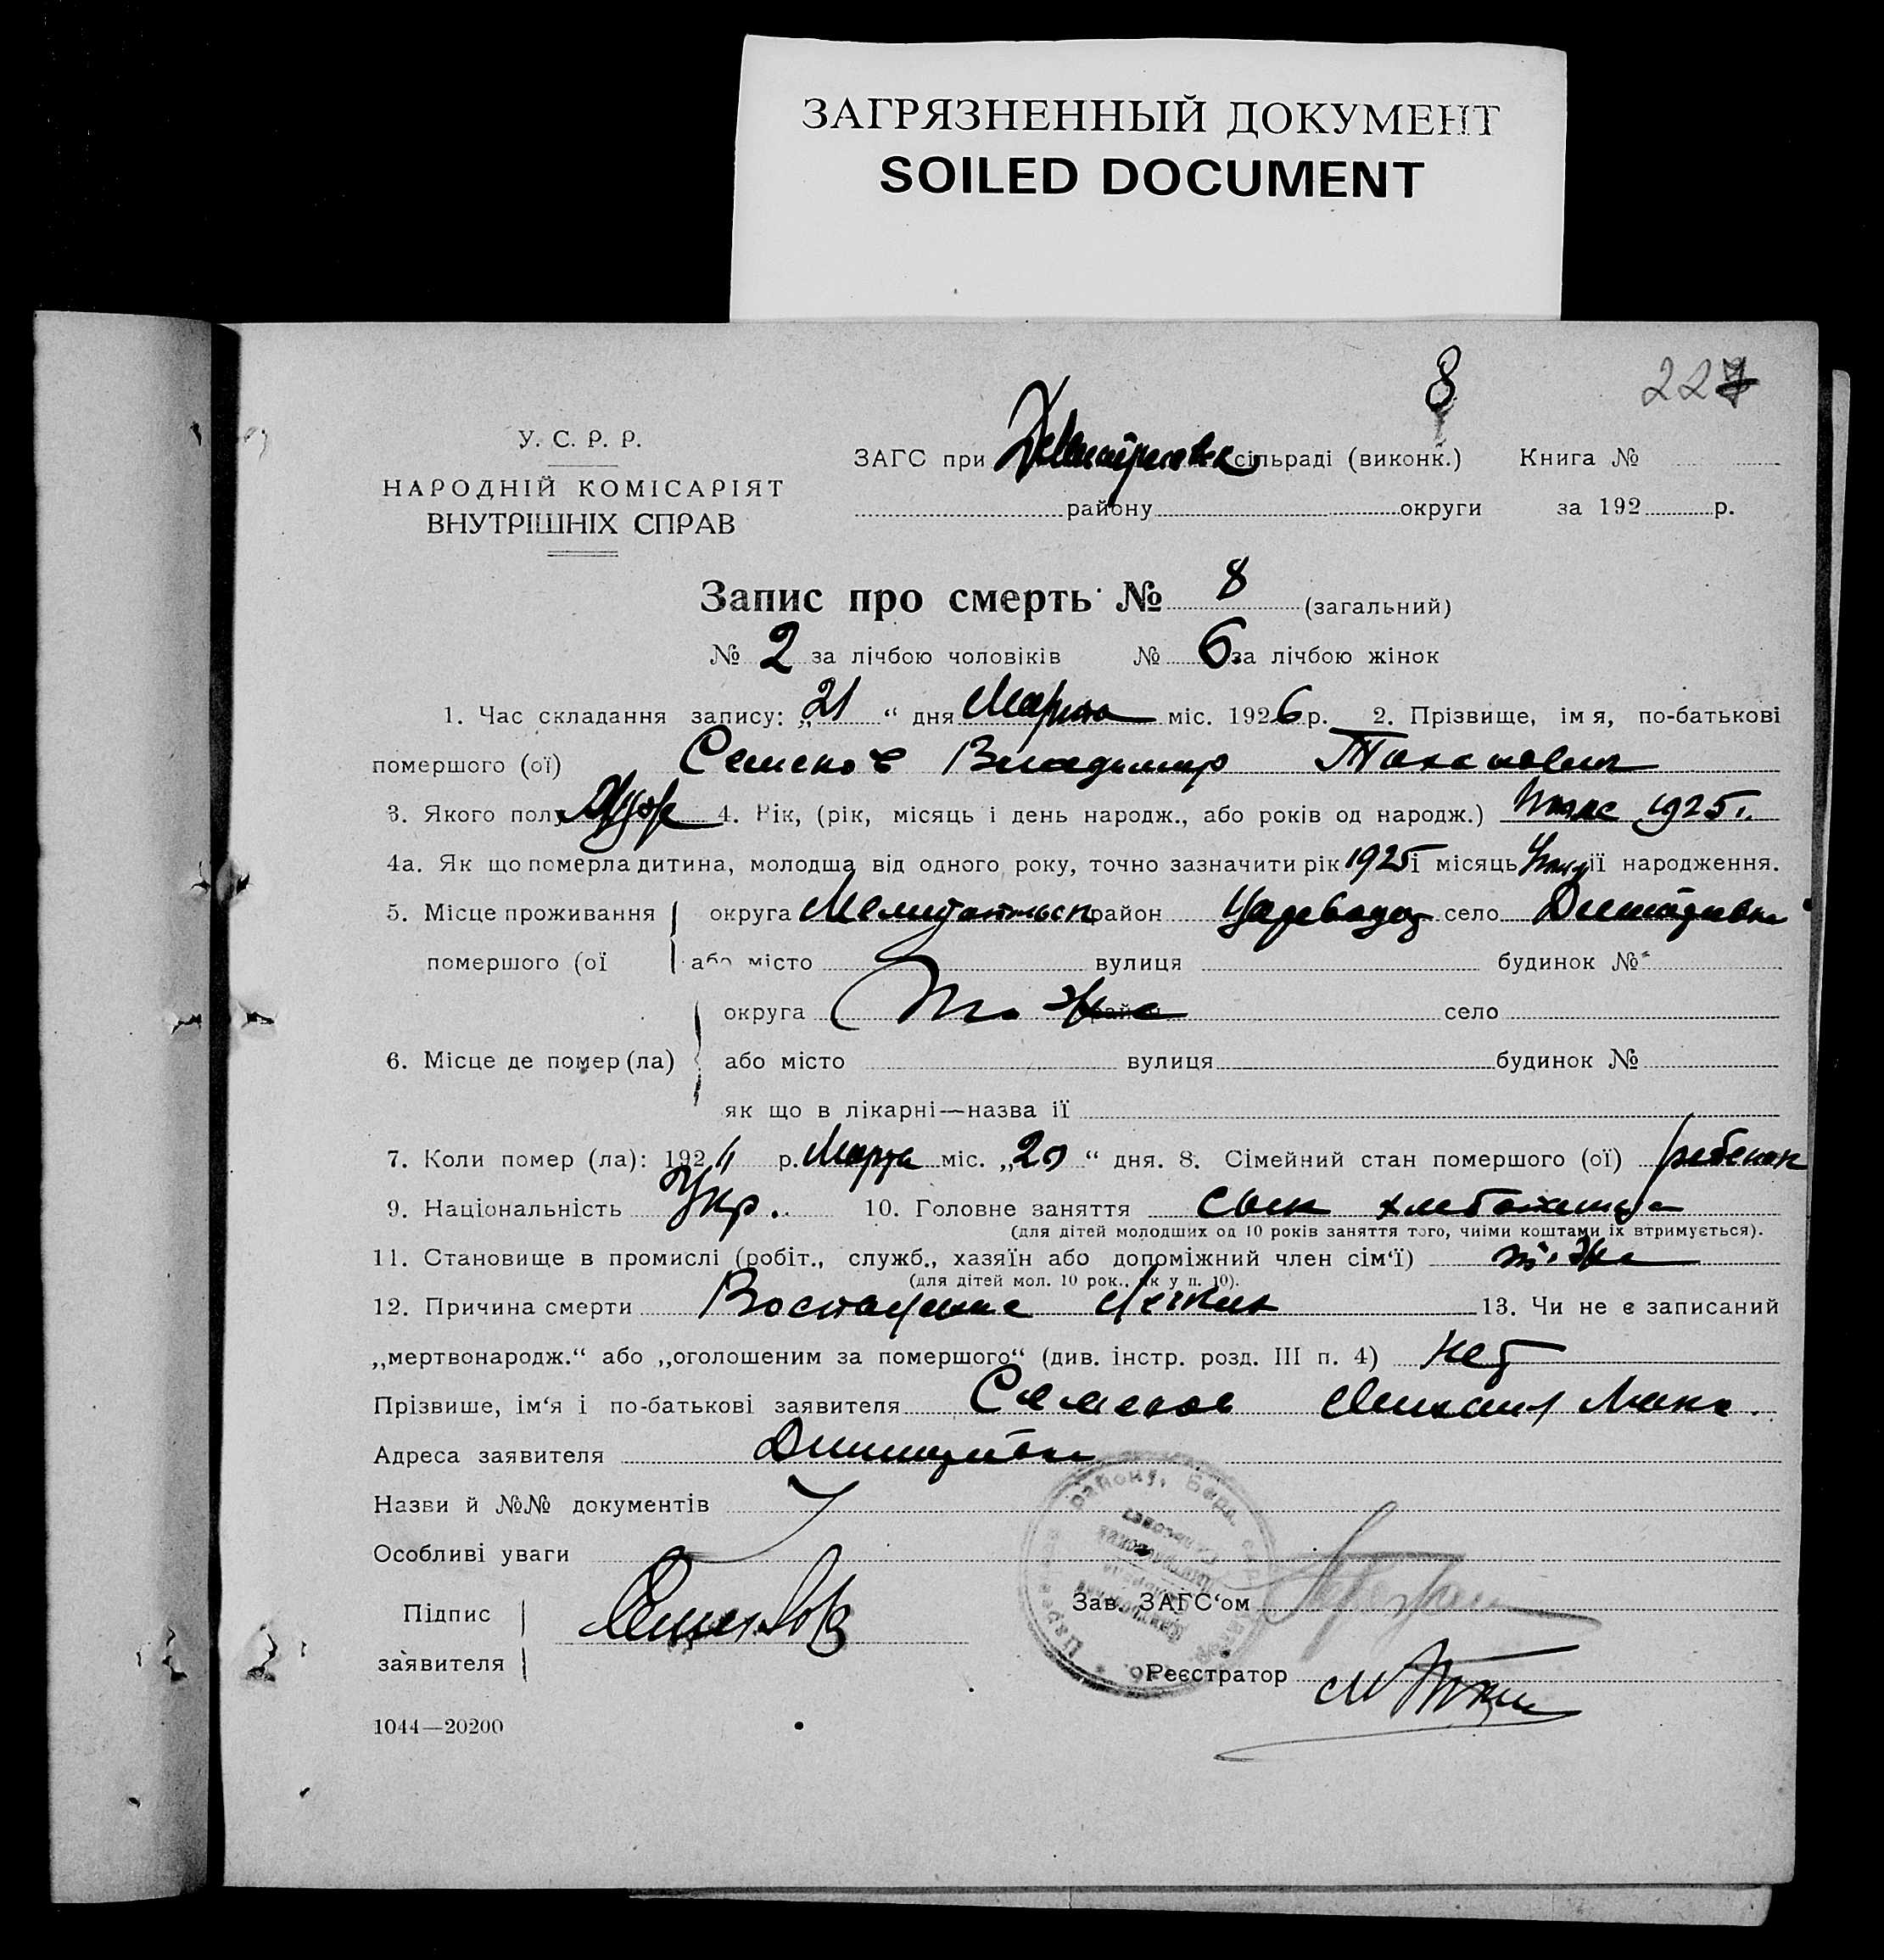 ЗАГРЯЗНЕННЫЙ ДОКУМЕНТ
SOILED DOCUMENT
8
227
У. С. Р. Р.
НАРОДНІЙ КОМІСАРІЯТ
ВНУТРІШНІХ СПРАВ
ЗАГС при сільраді (виконк.) Книга №
району округи за 192 р.
Запис про смерть № 8 (загальний)
№ 2 за лічбою чоловіків № 6 за лічбою жінок
1. Час складання запису: „21“ дня Марта міс. 1926 р. 2. Прізвище, імя, по-батькові
помершого (ої) Семенов Владимир
3. Якого полу Муж 4. Вік, (рік, місяць і день народж., або років од народж.) 1925 г.
4а. Як що померла дитина, молодща від одного року, точно зазначити рік 1925 і місяць її народження.
5. Місце проживання округа район село
помершого (ої або місто вулиця будинок №
округа То же район село
6. Місце де помер (ла) або місто вулиця будинок №
як що в лікарні—назва її
7. Коли помер (ла): 192 р. Марта міс. „20“ дня. 8. Сімейний стан помершого (ої) ребенок
9. Національність Укр. 10. Головне заняття сын хлебопашца
(для дітей молодших од 10 років заняття того, чиїми коштами їх втримується).
11. Становище в промислі (робіт., служб., хазяїн або допоміжний член сім‘ї) то же
(для дітей мол. 10 рок., як у п. 10).
12. Причина смерти Воспаление легких 13. Чи не є записаний
„мертвонародж.“ або „оголошеним за помершого“ (див. інстр. розд. III п. 4) нет
Прізвише, ім‘я і по-батькові заявителя Семенов Михаил
Адреса заявителя
Назви й №№ документів
Особливі уваги
Підпис Семенов Зав. ЗАГС‘ом
заявителя Реєстратор
1044—20200